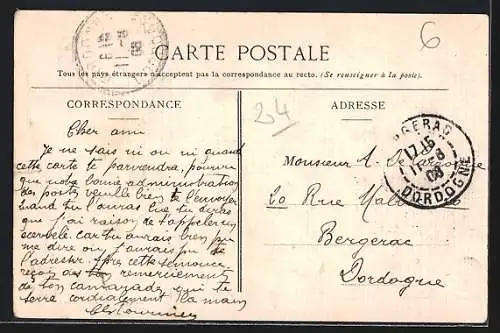 CARTE POSTALE
Tous les pays étrangers n'acceptent pas la correspondance au recto. (Se renseigner à la poste).
CORRESPONDANCE
ADRESSE
6
24
Cher ami
Je ne sais ni où ni quand
cette carte te parviendra, pourvu
que notre bonne administration
des postes veuille bien te l'envoyer
quand tu l'auras tu diras
que j'ai raison de t'appeler
car tu aurais bien pu
me dire où j'aurais pu
l'adresser. Après cette semonce
reçois les remerciements
de ton camarade qui te
serre cordialement la main
Monsieur
Rue
Bergerac
Dordogne
BERGERAC
17 15
11 - 6
08
DORDOGNE